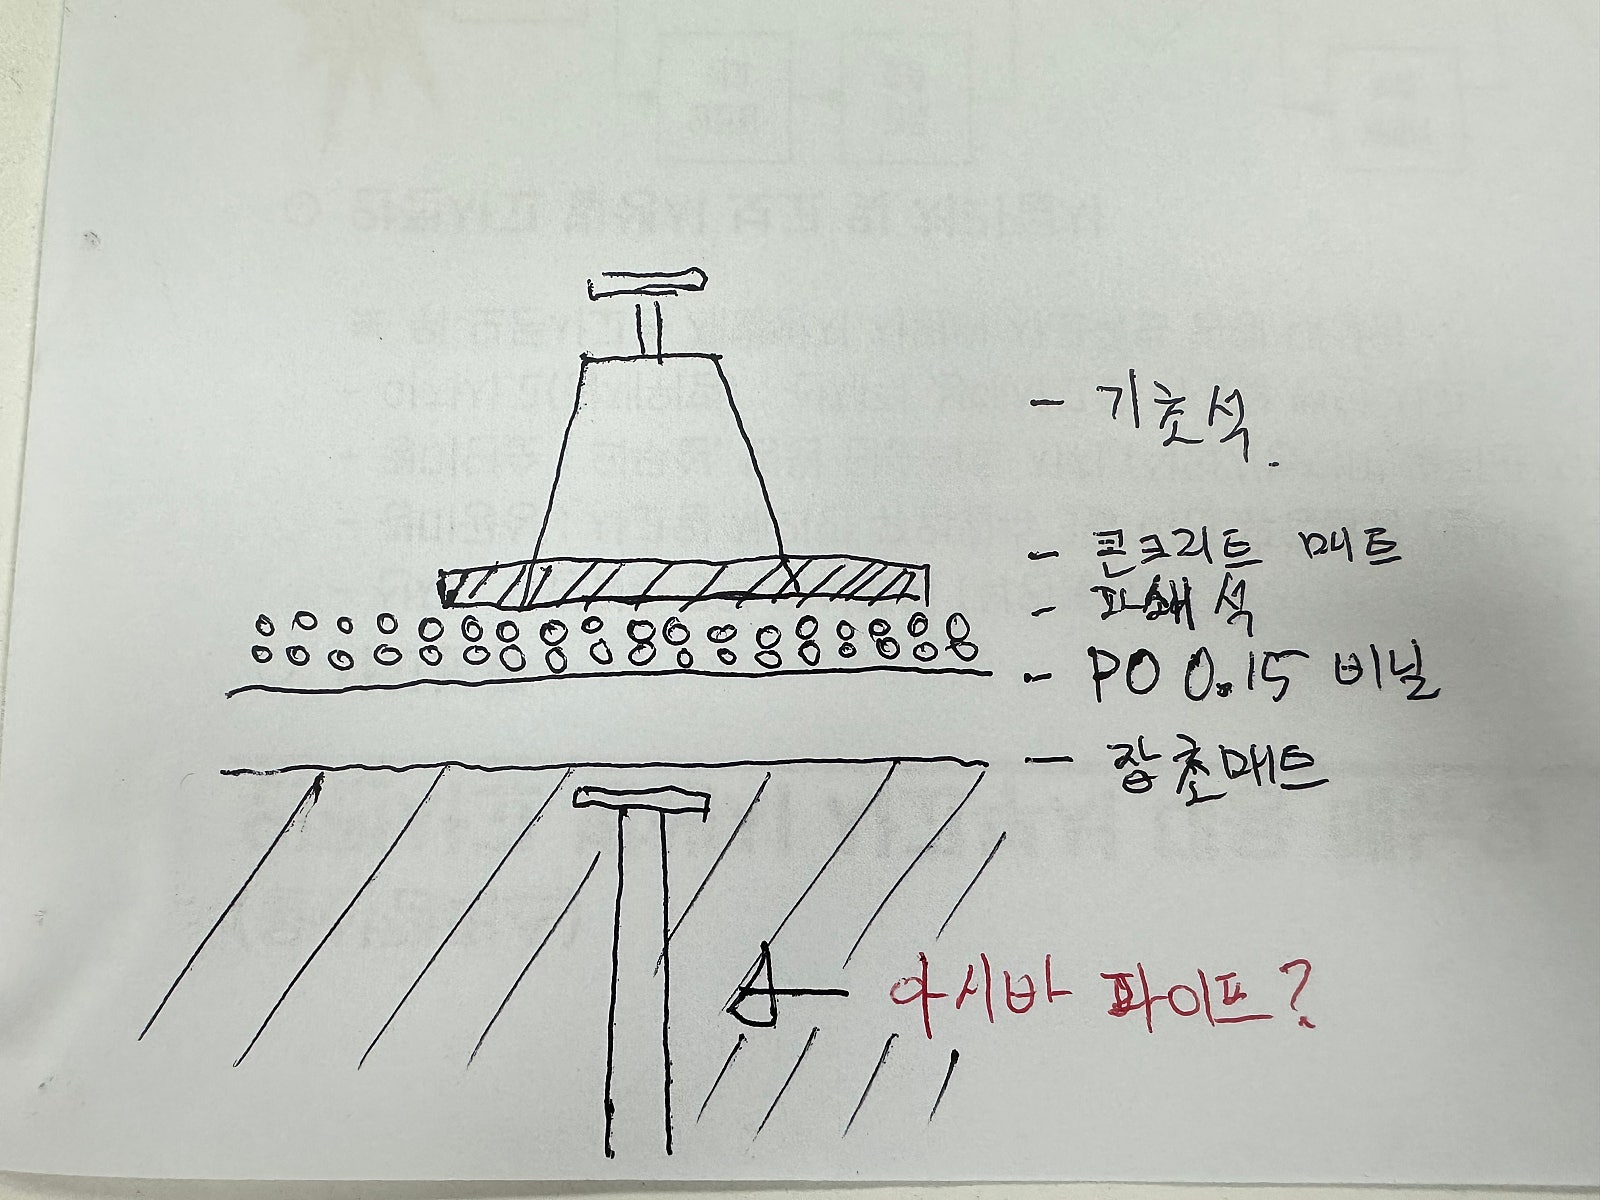 - 기초석.
- 콘크리트 매트
- 파쇄석
- PO 0.15 비닐
- 잡초매트
아시바 파이프?